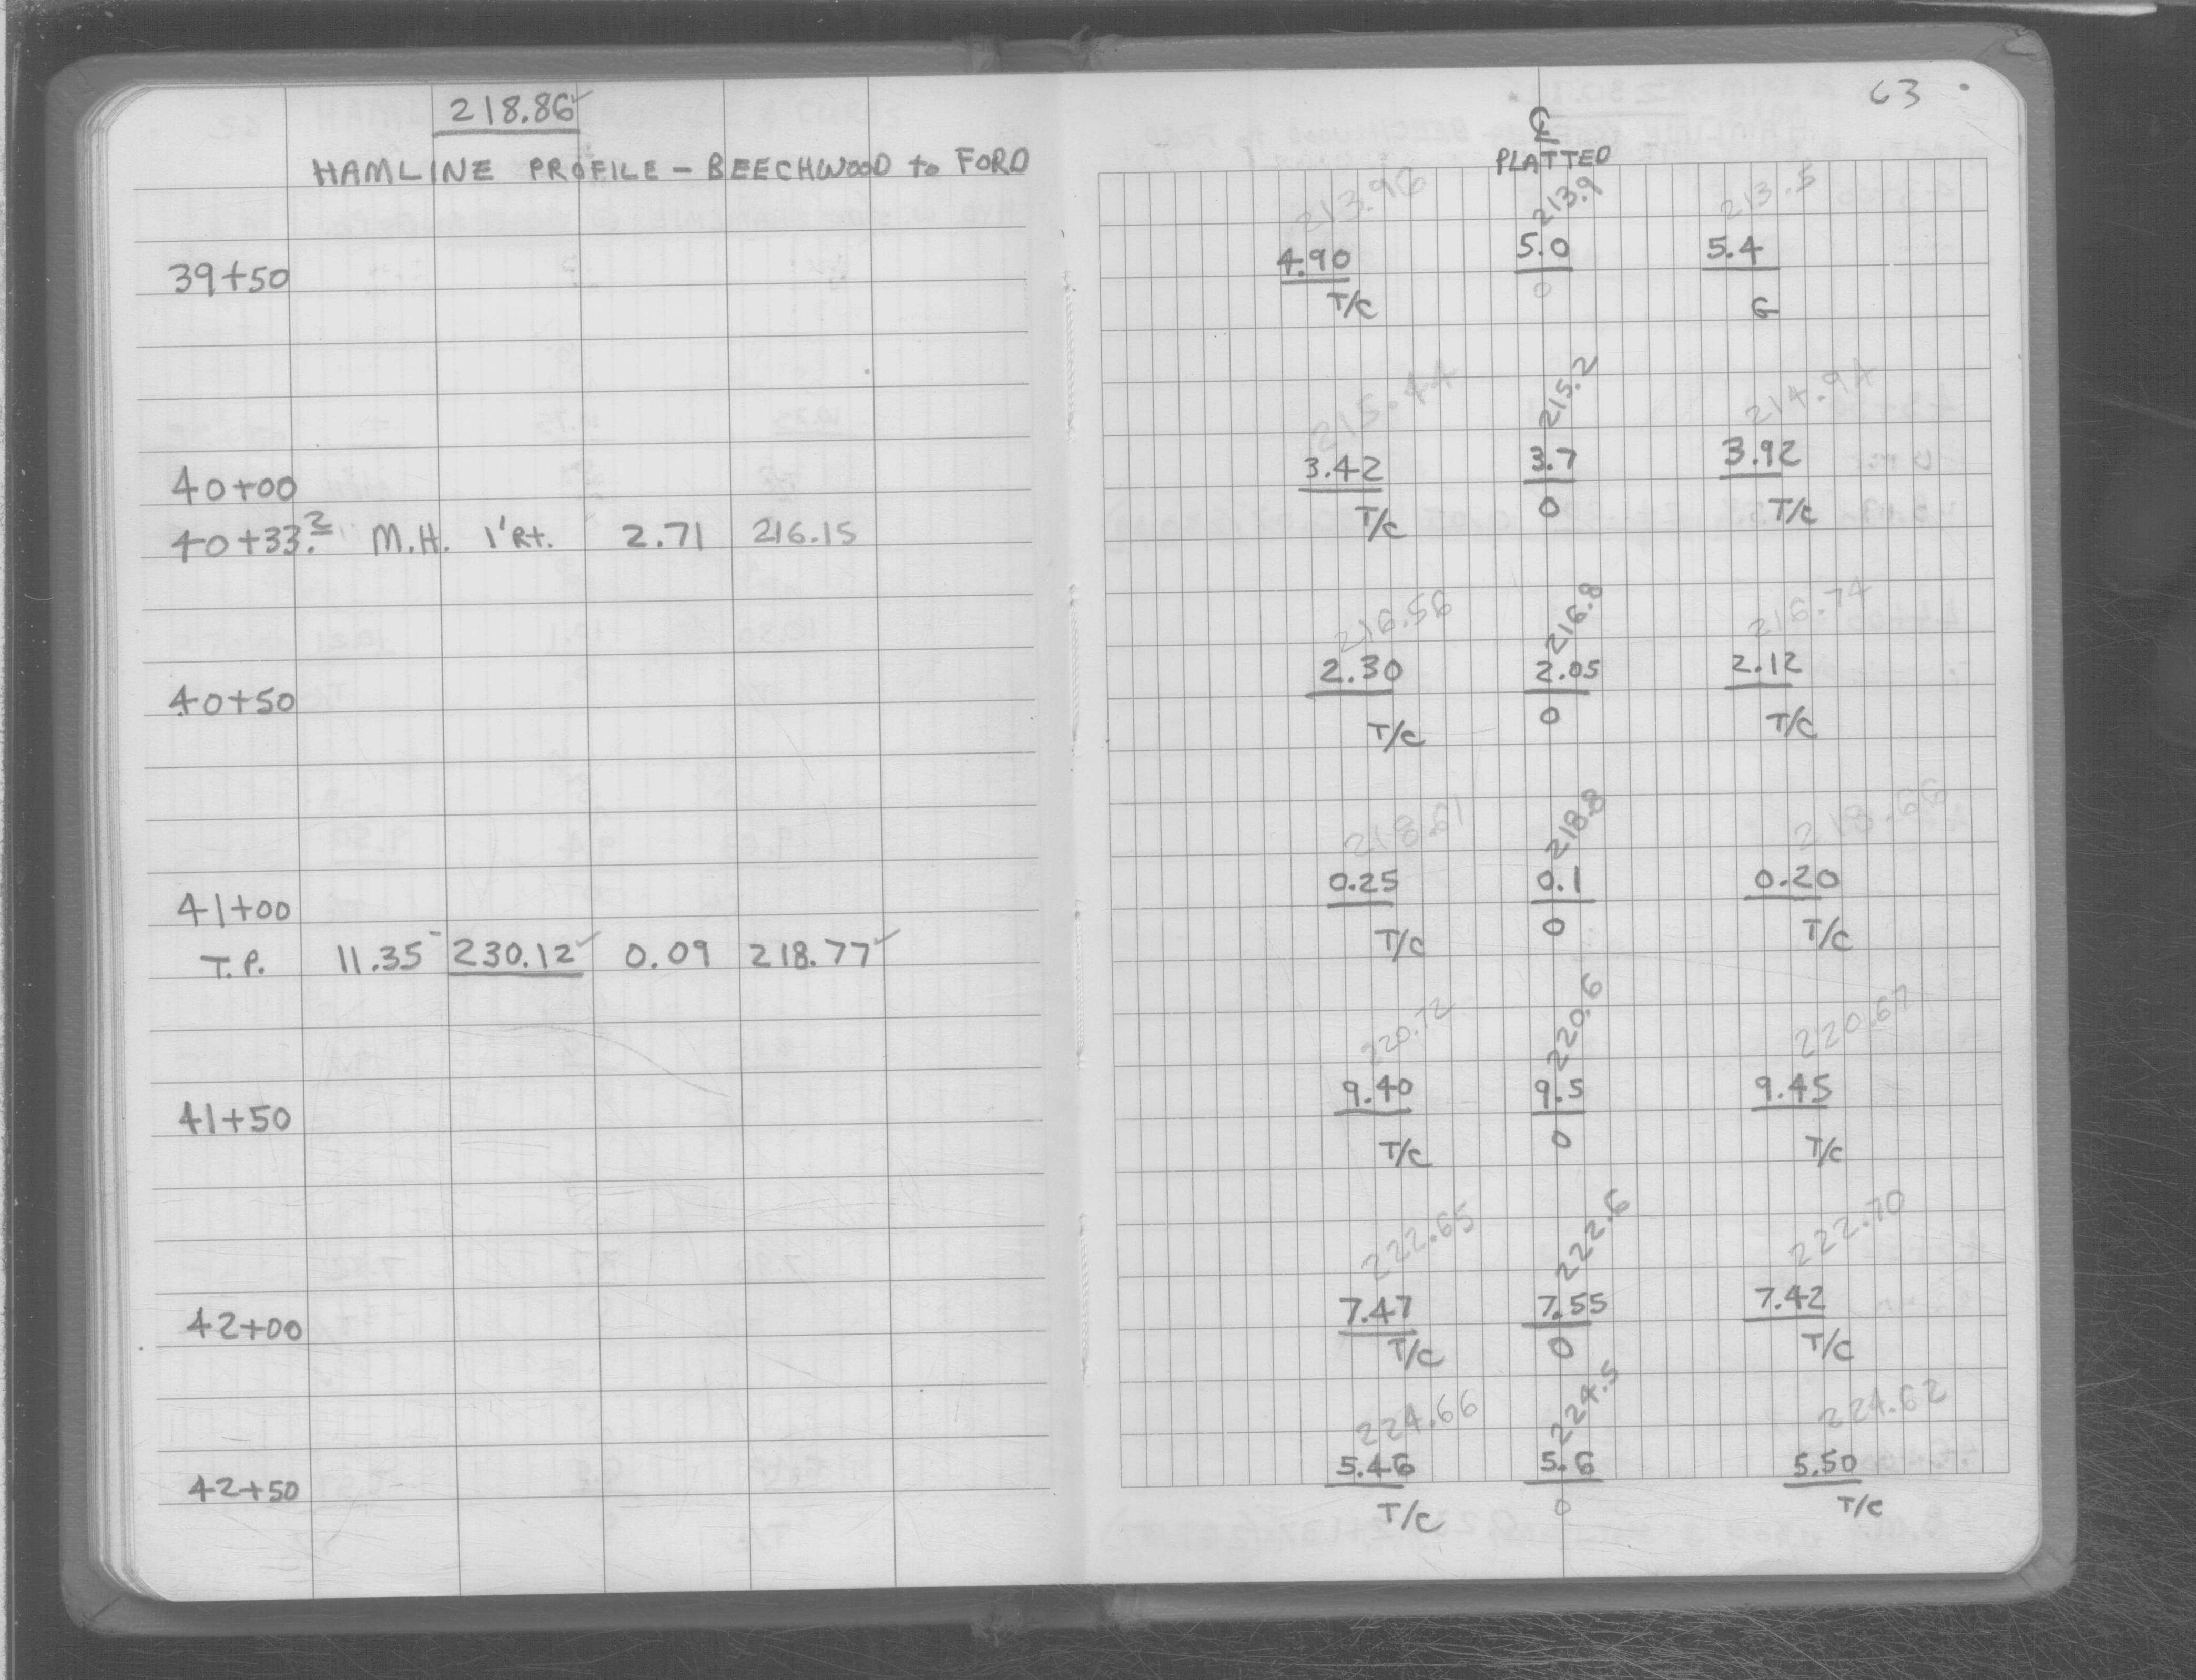 218.86✓
HAMLINE PROFILE - BEECHWOOD to FORD
39+50
40+00
40+33.2 M.H. 1' Rt. 2.71 216.15
40+50
41+00
T.P. 11.35 230.12✓ 0.09 218.77✓
41+50
42+00
42+50
63
℄
PLATTED
213.96 213.9 213.5
4.90 5.0 5.4
T/C 0 G
215.44 215.2 214.94
3.42 3.7 3.92
T/C 0 T/C
216.56 216.8 216.74
2.30 2.05 2.12
T/C 0 T/C
218.61 218.8 218.66
0.25 0.1 0.20
T/C 0 T/C
220.72 220.6 220.67
9.40 9.5 9.45
T/C 0 T/C
222.65 222.6 222.70
7.47 7.55 7.42
T/C 0 T/C
224.66 224.5 224.62
5.46 5.6 5.50
T/C 0 T/C